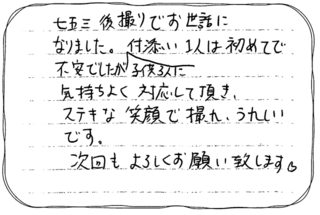 七五三後撮りでお世話に
なりました。付添い1人は初めてで
不安でしたが子供3人に
気持ちよく対応して頂き、
ステキな笑顔で撮れ、うれしい
です。
次回もよろしくお願い致します。